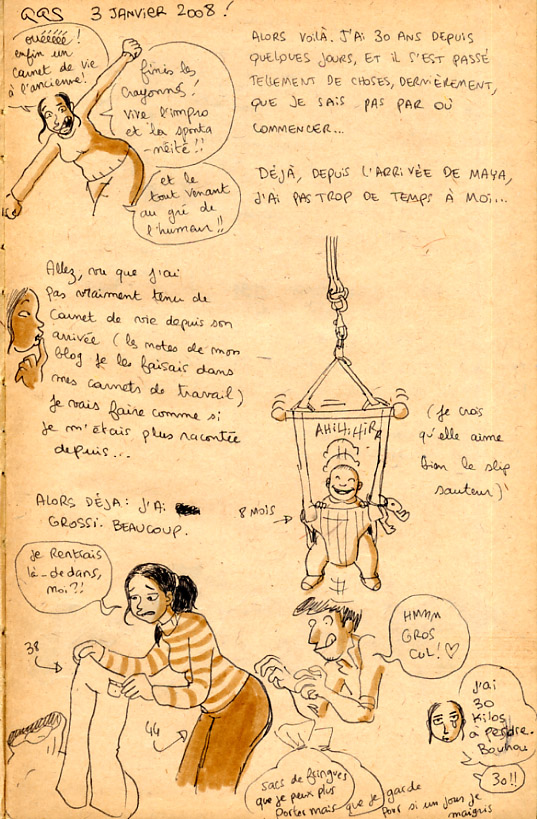 3 JANVIER 2008!
ouééééé!
enfin un
carnet de vie
à l'ancienne!
finis les
crayonnés!
vive l'impro
et la sponta
-néité!!
et le
tout venant
au gré de
l'humeur!!
ALORS VOILÀ. J'AI 30 ANS DEPUIS
QUELQUES JOURS, ET IL S'EST PASSÉ
TELLEMENT DE CHOSES, DERNIÈREMENT,
QUE JE SAIS PAS PAR OÙ
COMMENCER...
DÉJÀ, DEPUIS L'ARRIVÉE DE MAYA,
J'AI PAS TROP DE TEMPS À MOI...
Allez, vu que j'ai
pas vraiment tenu de
carnet de vie depuis son
arrivée (les notes de mon
blog je les faisais dans
mes carnets de travail)
je vais faire comme si
je m'étais plus racontée
depuis...
AHiHiHiHi
(je crois
qu'elle aime
bien le slip
sauteur)
8 MOIS
ALORS DÉJA: J'Ai
GROSSi. BEAUCOUP.
je Rentrais
là-dedans,
moi?!!
38
44
HMMM
GROS
CUL! ♡
J'ai
30
Kilos
à perdre.
Bouhou
30!!
sacs de fringues
que je peux plus
porter mais que je garde
pour si un jour je
maigris